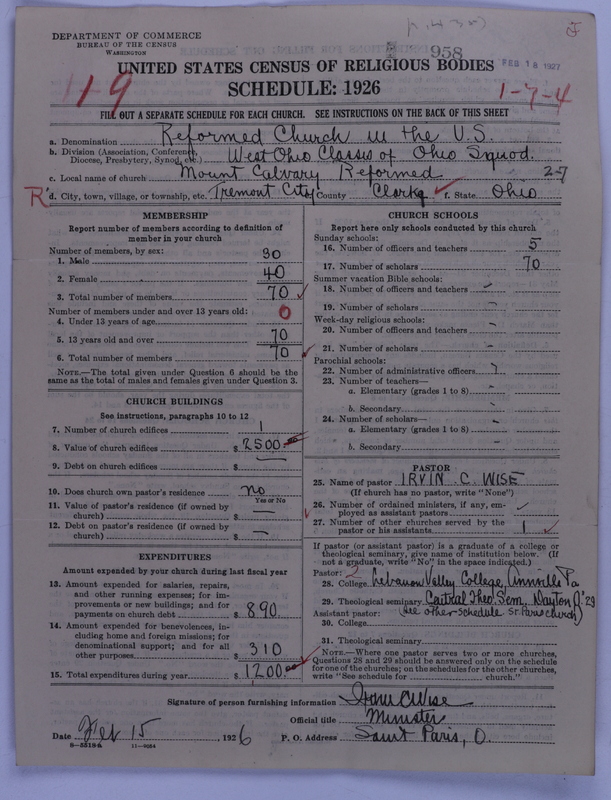 DEPARTMENT OF COMMERCE
BUREAU OF THE CENSUS
WASHINGTON
958
FEB 18 1927
UNITED STATES CENSUS OF RELIGIOUS BODIES
SCHEDULE: 1926
119
1-7-4
FILL OUT A SEPARATE SCHEDULE FOR EACH CHURCH. SEE INSTRUCTIONS ON THE BACK OF THIS SHEET
a. Denomination Reformed Church in the U.S.
b. Division (Association, Conference, Diocese, Presbytery, Synod, etc.) West Ohio Classis of Ohio Synod.
c. Local name of church Mount Calvary Reformed 27
R' d. City, town, village, or township, etc. Tremont City County Clark f. State Ohio
MEMBERSHIP
Report number of members according to definition of
member in your church
Number of members, by sex:
1. Male 30
2. Female 40
3. Total number of members 70
Number of members under and over 13 years old:
4. Under 13 years of age 0
5. 13 years old and over 70
6. Total number of members 70
NOTE.—The total given under Question 6 should be the
same as the total of males and females given under Question 3.
CHURCH BUILDINGS
See instructions, paragraphs 10 to 12
7. Number of church edifices 1
8. Value of church edifices $ 2500.00
9. Debt on church edifices $ —
10. Does church own pastor's residence no
Yes or No
11. Value of pastor's residence (if owned by
church) $ —
12. Debt on pastor's residence (if owned by
church) $ —
EXPENDITURES
Amount expended by your church during last fiscal year
13. Amount expended for salaries, repairs,
and other running expenses; for im-
provements or new buildings; and for
payments on church debt $ 890
14. Amount expended for benevolences, in-
cluding home and foreign missions; for
denominational support; and for all
other purposes $ 310
15. Total expenditures during year $ 1200.00
CHURCH SCHOOLS
Report here only schools conducted by this church
Sunday schools:
16. Number of officers and teachers 5
17. Number of scholars 70
Summer vacation Bible schools:
18. Number of officers and teachers -
19. Number of scholars -
Week-day religious schools:
20. Number of officers and teachers -
21. Number of scholars -
Parochial schools:
22. Number of administrative officers -
23. Number of teachers—
a. Elementary (grades 1 to 8) -
b. Secondary -
24. Number of scholars—
a. Elementary (grades 1 to 8) -
b. Secondary -
PASTOR
25. Name of pastor IRVIN C. WISE
(If church has no pastor, write "None")
26. Number of ordained ministers, if any, em-
ployed as assistant pastors
27. Number of other churches served by the
pastor or his assistants 1
If pastor (or assistant pastor) is a graduate of a college or
theological seminary, give name of institution below. (If
not a graduate, write "No" in the space indicated.)
Pastor: 2
28. College Lebanon Valley College, Annville Pa
29. Theological seminary Central Theo. Sem. Dayton O. '29
Assistant pastor: (see other schedule St. Paris church)
30. College
31. Theological seminary
NOTE.—Where one pastor serves two or more churches,
Questions 28 and 29 should be answered only on the schedule
for one of the churches; on the schedules for the other churches,
write "See schedule for church."
Signature of person furnishing information Irvin C Wise
Official title Minister
Date Feb 15 1926 P. O. Address Saint Paris, O.
8-5518a 11-9024